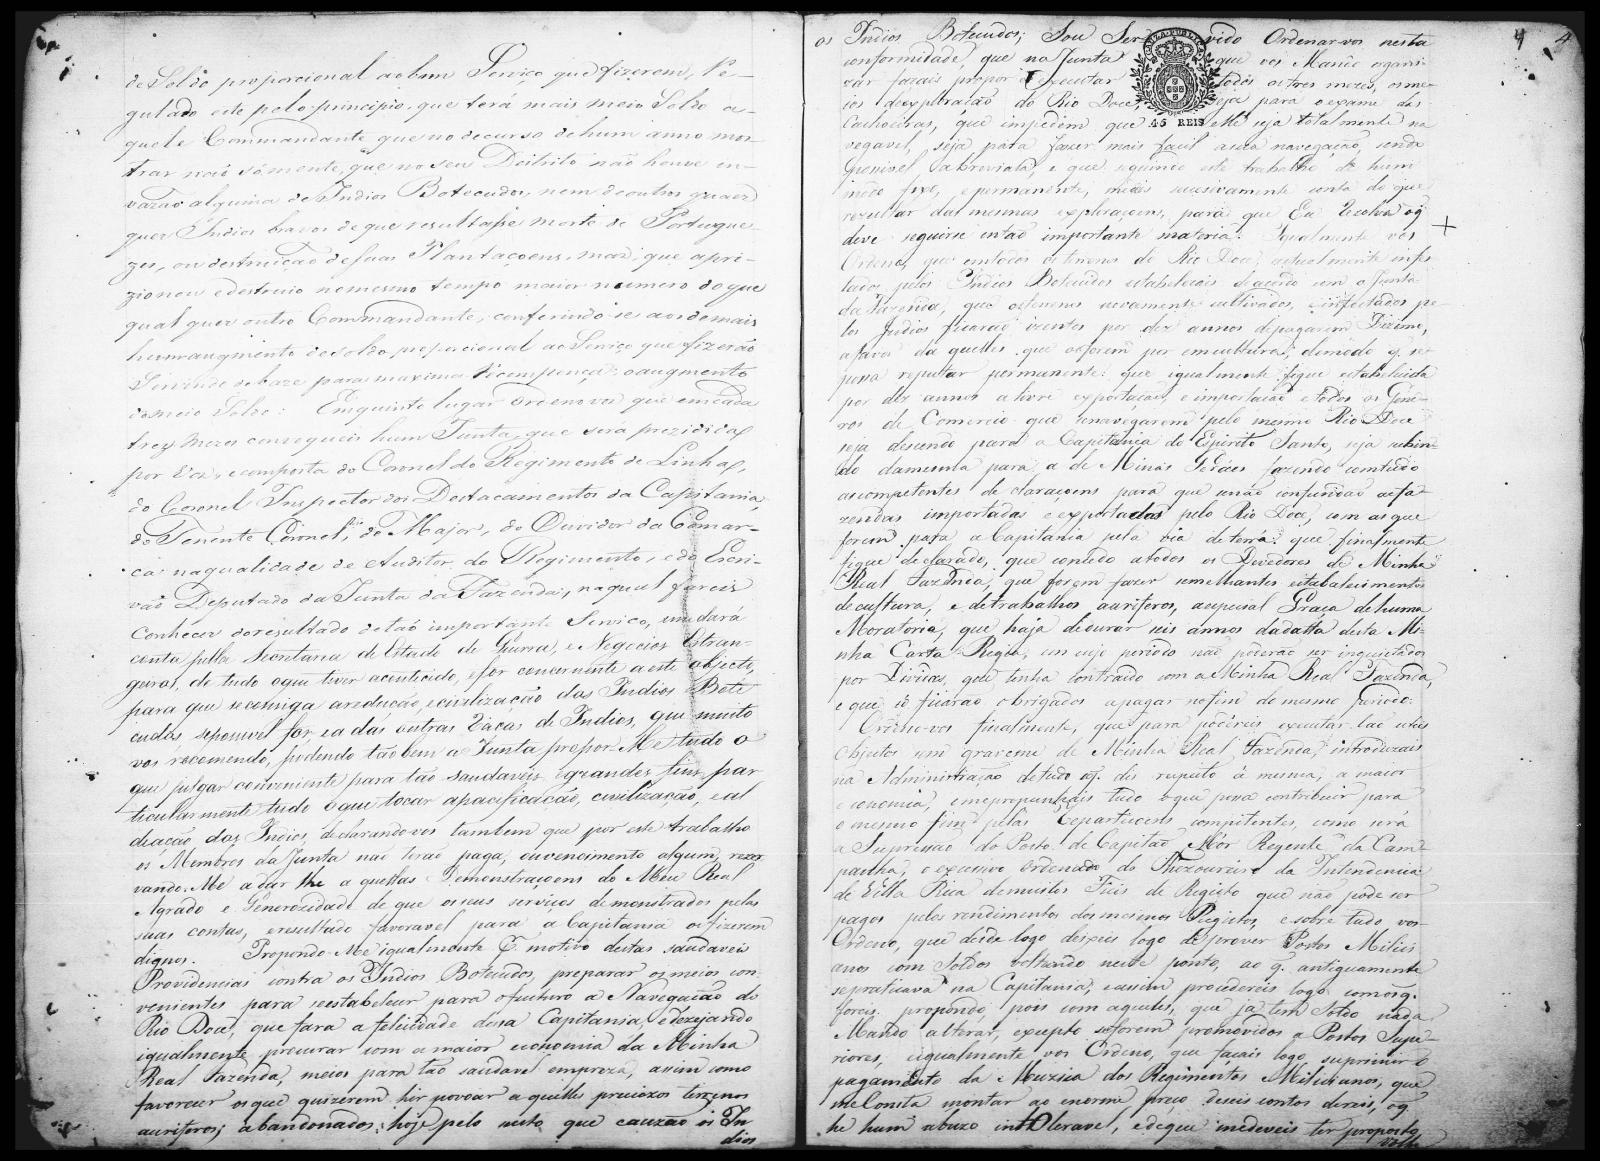 de Soldo proporcional ao bom Serviço que fizerem, Re-
gulado este pelo principio, que terá mais meio Soldo a-
quele Commandante que no decurso de hum anno mos-
trar naó sómente, que no seu Destrito naõ houve in-
vazaõ alguma de Indios Botecudos, nem de outros quaes
quer Indios bravos de que resultasse morte de Portugue-
zes, ou destruiçaõ de suas Plantaçoens, mas, que apri-
zionou e destruio no mesmo tempo maior numero do que
qual quer outro Commandante, conferindo-se aos demais
hum augmento de soldo proporcional ao Serviço que fizeraõ
Servindo de baze para maxima recompença, o augmento
do meio Soldo: Em quinto lugar Ordenovos que em cada
trez mezes convoqueis hum Junta, que sera prezidida
por Vós, e composta do Coronel do Regimento de Linha,
do Coronel Inspector dos Destacamentos da Capitania,
do Tenente Coronel, do Major, do Ouvidor da Comar-
ca na qualidade de Auditor do Regimento, e do Escri-
vaõ Deputado da Junta da Fazenda, na qual fareis
conhecer do resultado de taõ importante Serviço, e me dará
conta pella Secretaria de Estado de Guerra, e Negocios Estran-
geiros, de tudo o que tiver acontecido, e for concernente a este objecto,
para que se consiga a reduçaõ, e civilizaçaõ dos Indios Bote
cudos, se possivel for, e a das outras Racas de Indios, que muito
vos recomendo, podendo taõ bem a Junta propor Me tudo o
que julgar conveniente para taõ saudaveis, e grandes fins, par
ticularmente tudo o que tocar a pacificaçaõ, civilizaçaõ, e al
deaçaõ dos Indios, declarando-vos tambem que por este trabalho
os Membros da Junta naõ teraõ paga, ou vencimento algum, rezer
vando-Me a dar lhe a quellas Demonstraçoens do Meu Real
Agrado e Generozidade de que os seus serviços demonstrados pelas
suas contas, e resultado favoravel para a Capitania os fizerem
dignos. Propondo-Me igualmente p. motivo destas saudaveis
Providencias contra os Indios Botecudos, preparar os meios con-
venientes para se estabelecer para o futuro a Navegaçaõ do
Rio Doce, que fara a felicidade dessa Capitania, e dezejando
igualmente procurar com a maior economia da Minha
Real Fazenda, meios para taõ saudavel empreza, assim como
favorecer os que quizerem hir povoar a quelles preciozos terrenos
auriferos, abandonados hoje pelo susto que cauzaõ os In
dios
os Indios Botecudos; Sou Servido Ordenar-vos nesta
conformidade, que na Junta que vos Mando organi-
zar façais propor e executar todos os tres mezes, os me-
ios de exploraçaõ do Rio Doce, seja para o exame das
Cachoeiras, que impedem que elle seja totalmente na
vegavel, seja para fazer mais facil a sua navegaçaõ, sendo
possivel abreviala, e que seguindo este trabalho de hum
modo fixo, e permanente, medeis sucessivamente conta do que
rezultar das mesmas exploraçoens, para que Eu Rezolva o q̃
deve seguirse em taõ importante materia. Igualmente vos
Ordeno, que em todos os terrenos do Rio Doce, actualmente infes
tados pelos Indios Botecudos estabeleçais de acordo com a Junta
da Fazenda, que os terrenos novamente cultivados, e infestados pe-
los Indios ficaraõ izentos por dez annos de pagarem Dizimo,
a favor da quelles que os forem por em cultura, de modo q̃ se
possa reputar permanente: que igualmente fique estabelecida
por dez annos a livre exportaçaõ, e importaçaõ de todos os Gene-
ros de Comercio que se navegarem pelo mesmo Rio Doce
seja descendo para a Capitania do Espirito Santo, seja subin-
do da mesma para a de Minas Geraes fazendo comtudo
as competentes declaraçoens para que se naõ confundaõ as fa-
zendas importadas e exportadas pelo Rio Doce, com as que
forem para a Capitania pela via de terra: que finalmente
fique declarado, que concedo a todos os Devedores de Minha
Real Fazenda, que forem fazer semelhantes estabelecimentos
de cultura, e de trabalhos auriferos, a especial Graça de huma
Moratoria, que haja de durar seis annos da data desta Mi-
nha Carta Regia, em cujo periodo naõ poderaõ ser inquietados
por Dividas, q. tenha contraido com a Minha Real Fazenda,
e que só ficaraõ obrigados a pagar no fim do mesmo periodo.
Ordeno-vos finalmente, que para podereis executar taõ uteis
Objectos sem gravame de Minha Real Fazenda, introduzais
na Administraçaõ de tudo o q̃. diz respeito á mesma, a maior
economia, e me proponhais tudo o que possa contribuir para
o mesmo fim pelas Repartiçoens competentes, como será
a Supressaõ do Posto de Capitaõ Mór Regente da Cam-
panha, o excessivo ordenado do Thezoureiro da Intendencia
de Villa Rica de muitos Fieis de Registo que naõ pode ser
pagos pelos rendimentos dos mesmos Registos, e sobre tudo vos
Ordeno, que desde logo deixeis logo de prover Postos Milici
anos com Soldos voltando neste ponto, ao q̃. antiguamente
se praticava na Capitania, e assim procedereis logo com os q̃.
foreis propondo, pois com aqueles, que já tem Soldo nada
Mando alterar, excepto se forem promovidos a Postos Supe-
riores, e igualmente vos Ordeno, que façais logo suprimir o
pagamento da Muzica dos Regimentos Milicianos, que
me Consta montar ao enorme preço de seis contos de reis, o q̃
he hum abuzo intOleravel, e de que me deveis ter proposto
4
4
45 REIS